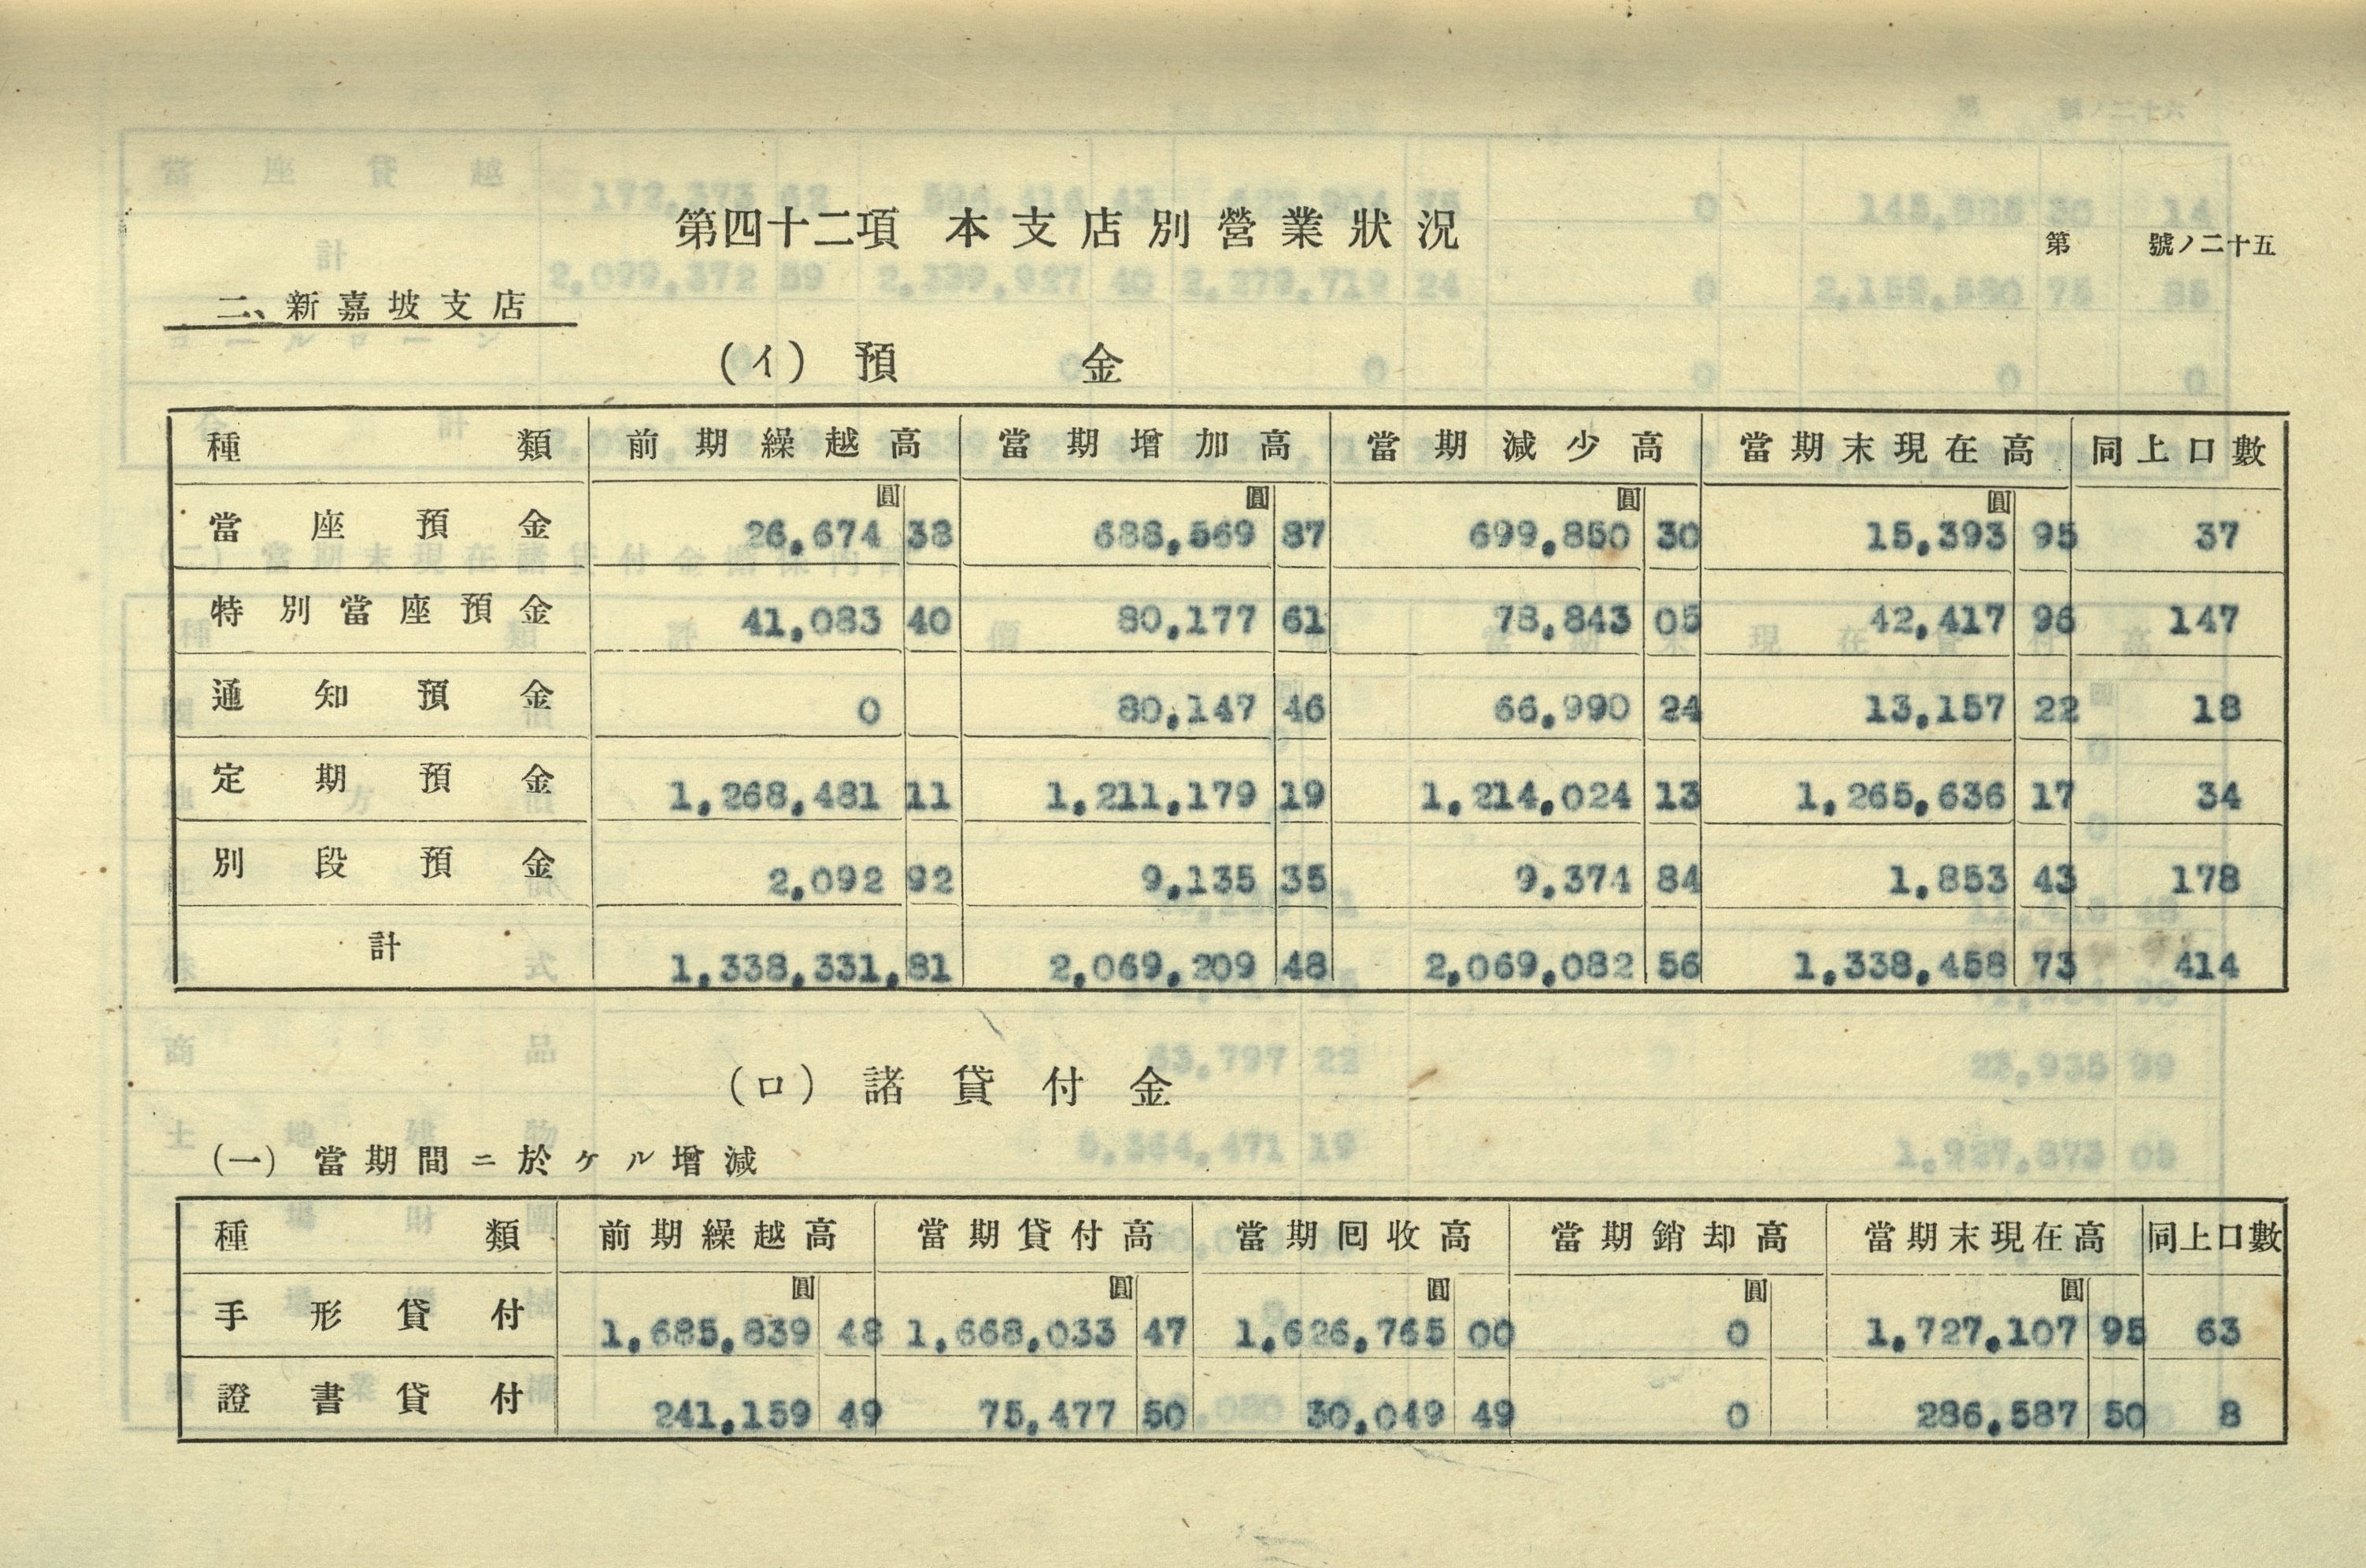 第四十二項 本支店別營業狀況
第 號ノ二十五
二、新嘉坡支店
(イ) 預金
種類 前期繰越高 當期增加高 當期減少高 當期末現在高 同上口數
圓 圓 圓 圓
當座預金 26,674 38 688,569 87 699,850 30 15,393 95 37
特別當座預金 41,083 40 80,177 61 78,843 05 42,417 96 147
通知預金 0 80,147 46 66,990 24 13,157 22 18
定期預金 1,268,481 11 1,211,179 19 1,214,024 13 1,265,636 17 34
別段預金 2,092 92 9,135 35 9,374 84 1,853 43 178
計 1,338,331,81 2,069,209 48 2,069,082 56 1,338,458 73 414
(ロ) 諸貸付金
(一) 當期間ニ於ケル增減
種類 前期繰越高 當期貸付高 當期囘收高 當期銷却高 當期末現在高 同上口數
圓 圓 圓 圓 圓
手形貸付 1,685,839 48 1,668,033 47 1,626,765 00 0 1,727,107 95 63
證書貸付 241,159 49 75,477 50 30,049 49 0 286,587 50 8